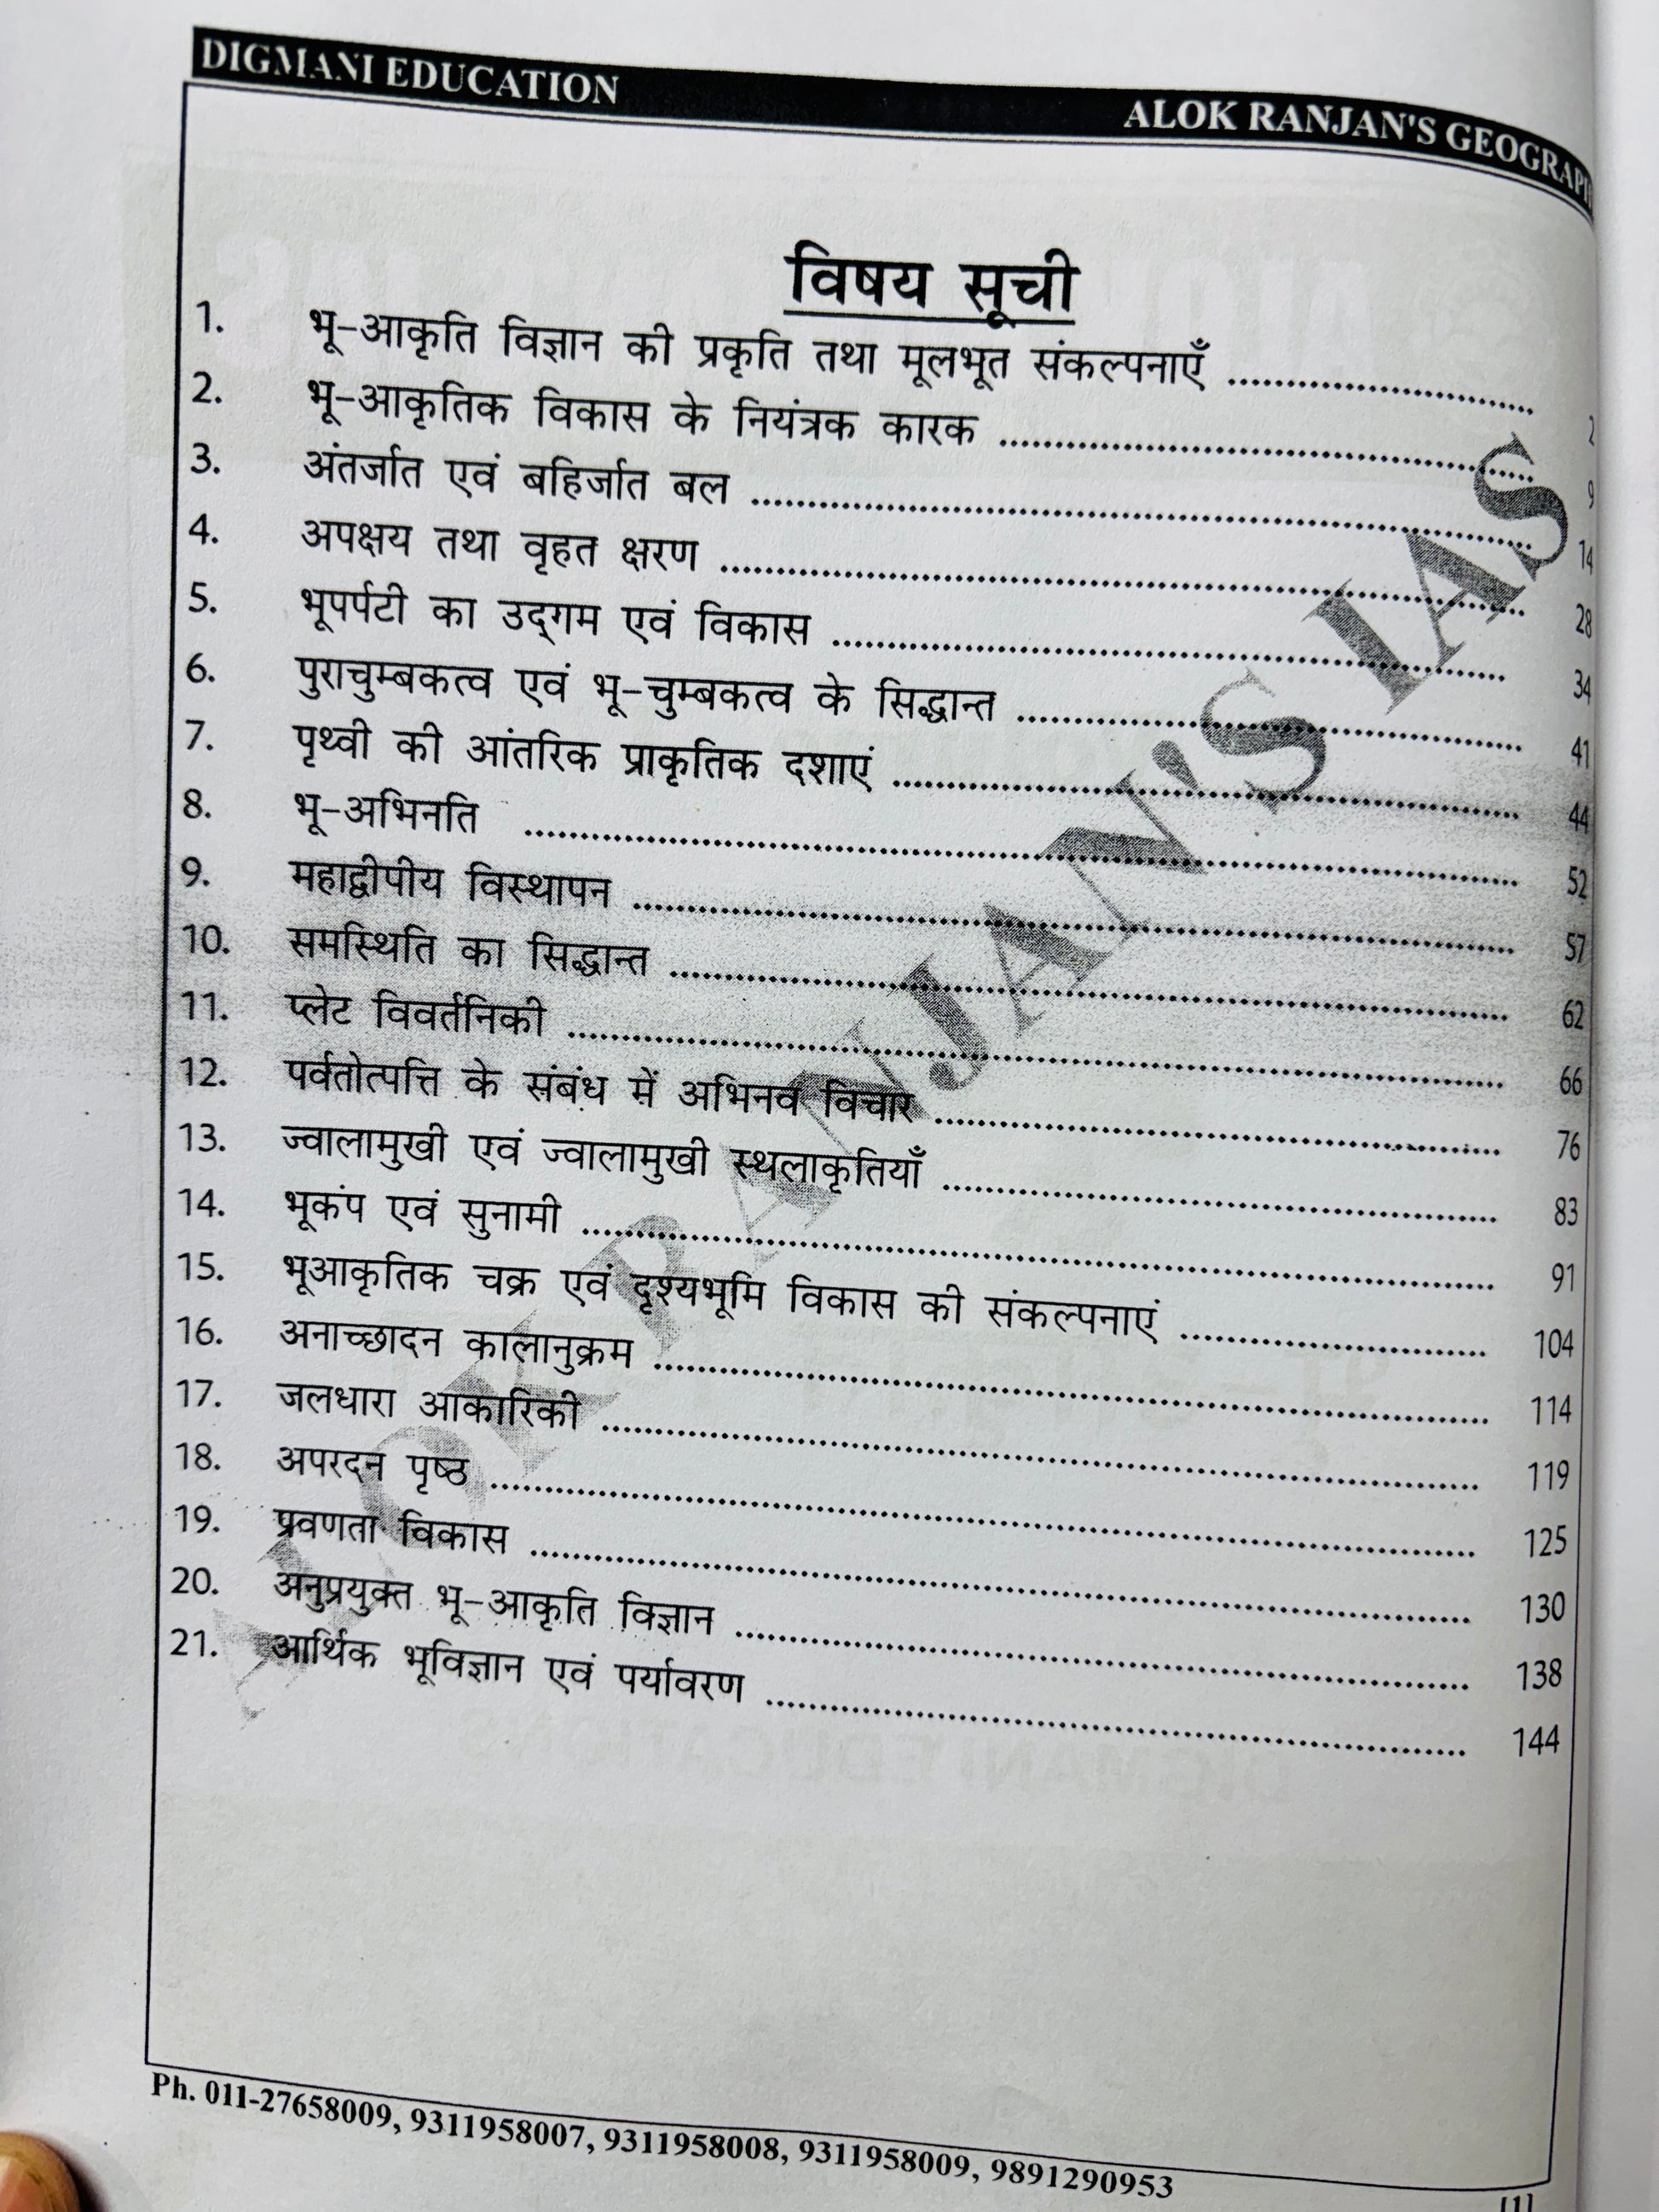 DIGMANI EDUCATION
ALOK RANJAN'S GEOGRAPH
विषय सूची
1. भू-आकृति विज्ञान की प्रकृति तथा मूलभूत संकल्पनाएँ ........ 2
2. भू-आकृतिक विकास के नियंत्रक कारक ........ 9
3. अंतर्जात एवं बहिर्जात बल ........ 14
4. अपक्षय तथा वृहत क्षरण ........ 28
5. भूपर्पटी का उद्गम एवं विकास ........ 34
6. पुराचुम्बकत्व एवं भू-चुम्बकत्व के सिद्धान्त ........ 41
7. पृथ्वी की आंतरिक प्राकृतिक दशाएं ........ 44
8. भू-अभिनति ........ 52
9. महाद्वीपीय विस्थापन ........ 57
10. समस्थिति का सिद्धान्त ........ 62
11. प्लेट विवर्तनिकी ........ 66
12. पर्वतोत्पत्ति के संबंध में अभिनव विचार ........ 76
13. ज्वालामुखी एवं ज्वालामुखी स्थलाकृतियाँ ........ 83
14. भूकंप एवं सुनामी ........ 91
15. भूआकृतिक चक्र एवं दृश्यभूमि विकास की संकल्पनाएं ........ 104
16. अनाच्छादन कालानुक्रम ........ 114
17. जलधारा आकारिकी ........ 119
18. अपरदन पृष्ठ ........ 125
19. प्रवणता विकास ........ 130
20. अनुप्रयुक्त भू-आकृति विज्ञान ........ 138
21. आर्थिक भूविज्ञान एवं पर्यावरण ........ 144
ALOK RANJAN'S IAS
Ph. 011-27658009, 9311958007, 9311958008, 9311958009, 9891290953
[1]